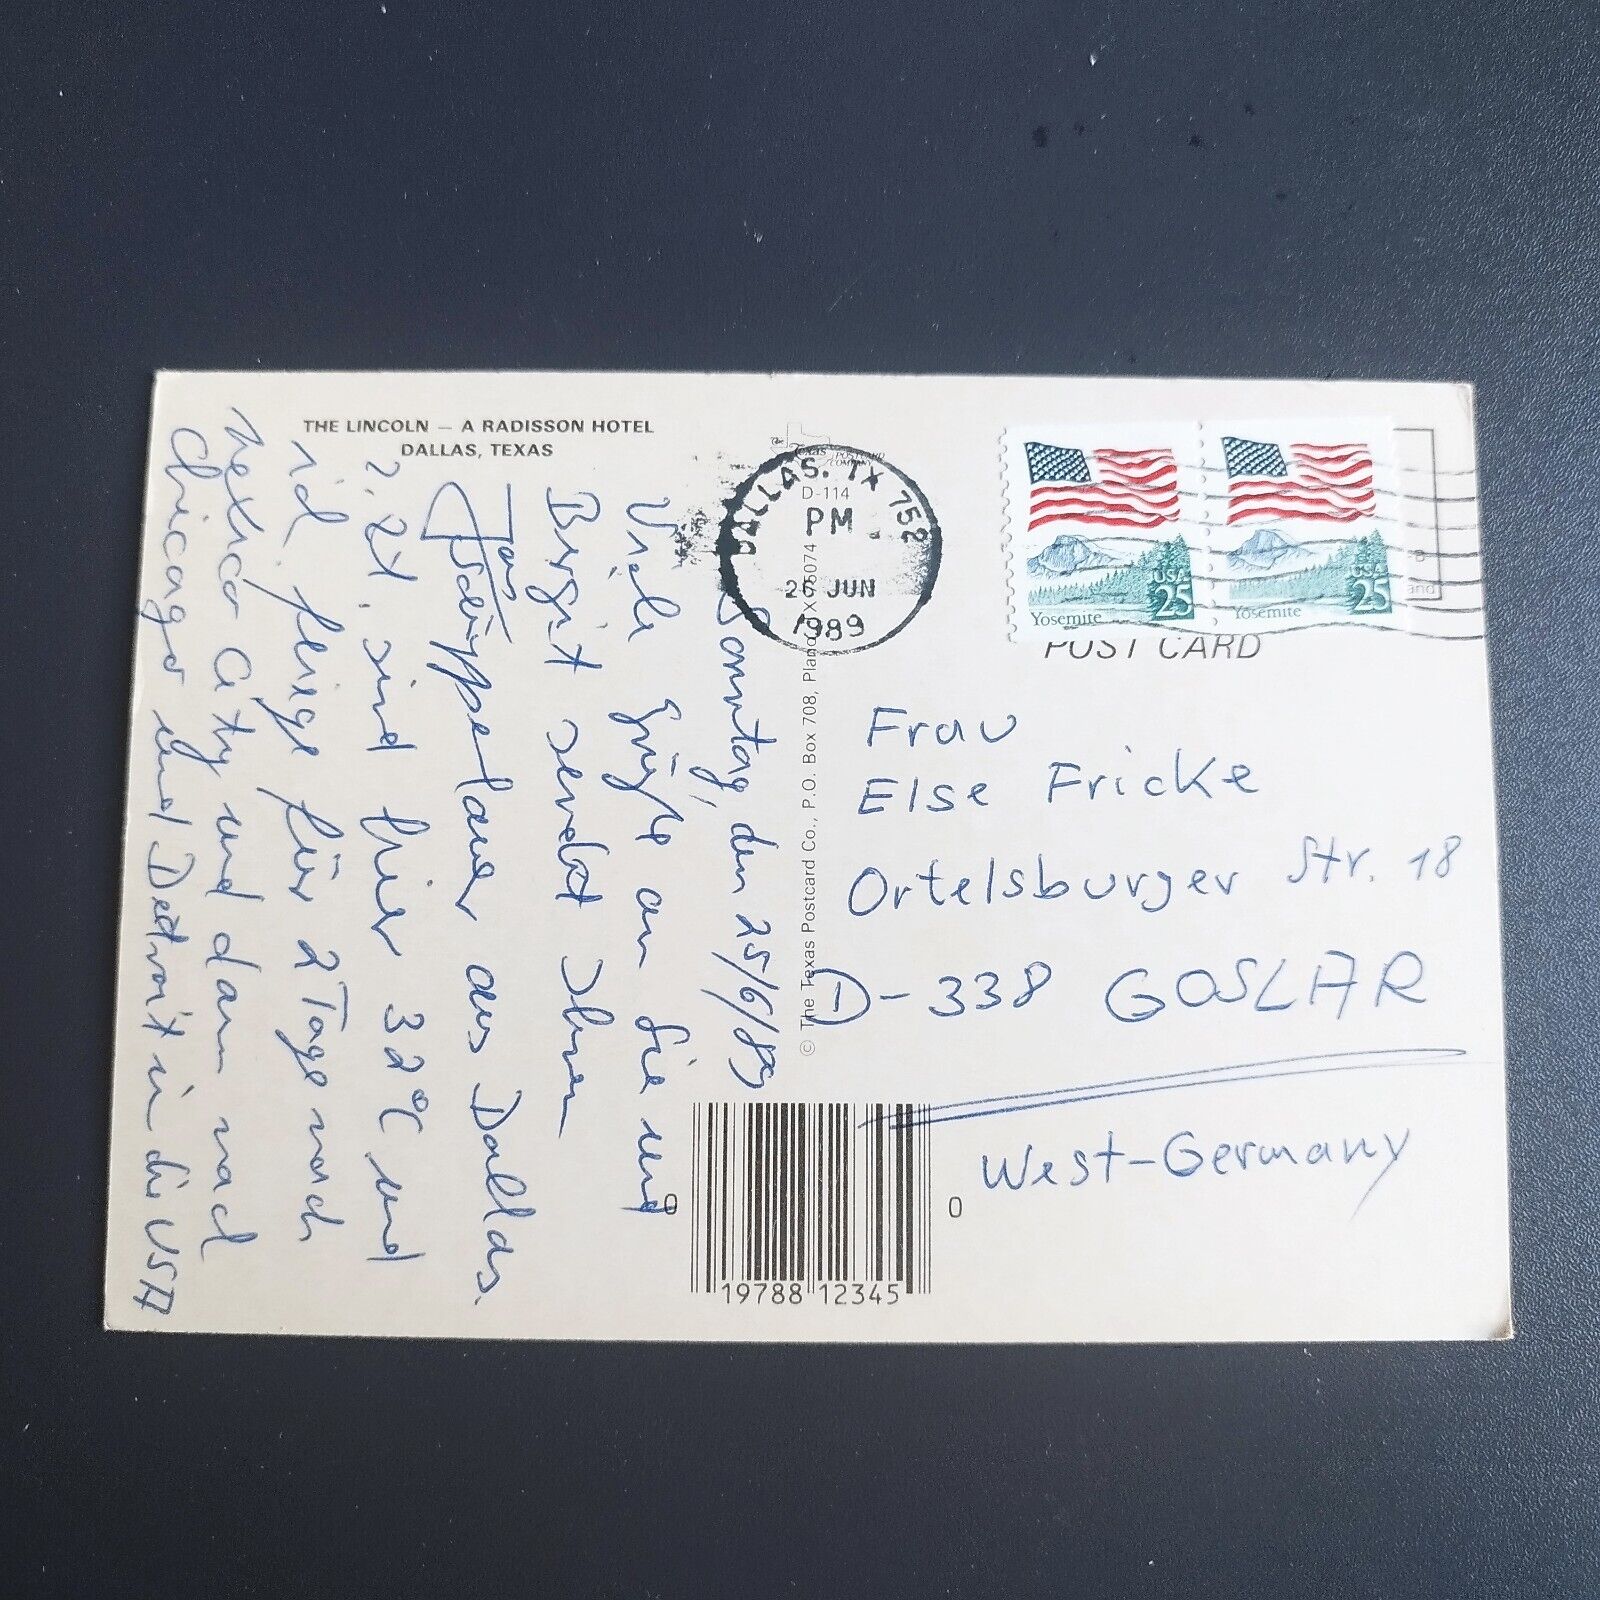 THE LINCOLN — A RADISSON HOTEL
DALLAS, TEXAS
Sonntag, den 25/6/89
Viele Grüße an Sie und
Birgit sendet Ihnen
aus Dallas.
z. Zt. sind hier 32°C und
ich fliege für 2 Tage nach
Mexico City und dann nach
Chicago und Detroit in die USA
Texas
POSTCARD
COMPANY
D-114
© The Texas Postcard Co., P.O. Box 708, Plano, TX 75074
DALLAS, TX 752
PM
JUN
1989
USA
25
Yosemite
USA
25
Yosemite
POST CARD
Frau
Else Fricke
Ortelsburger Str. 18
D-338 GOSLAR
West-Germany
0
19788 12345
0